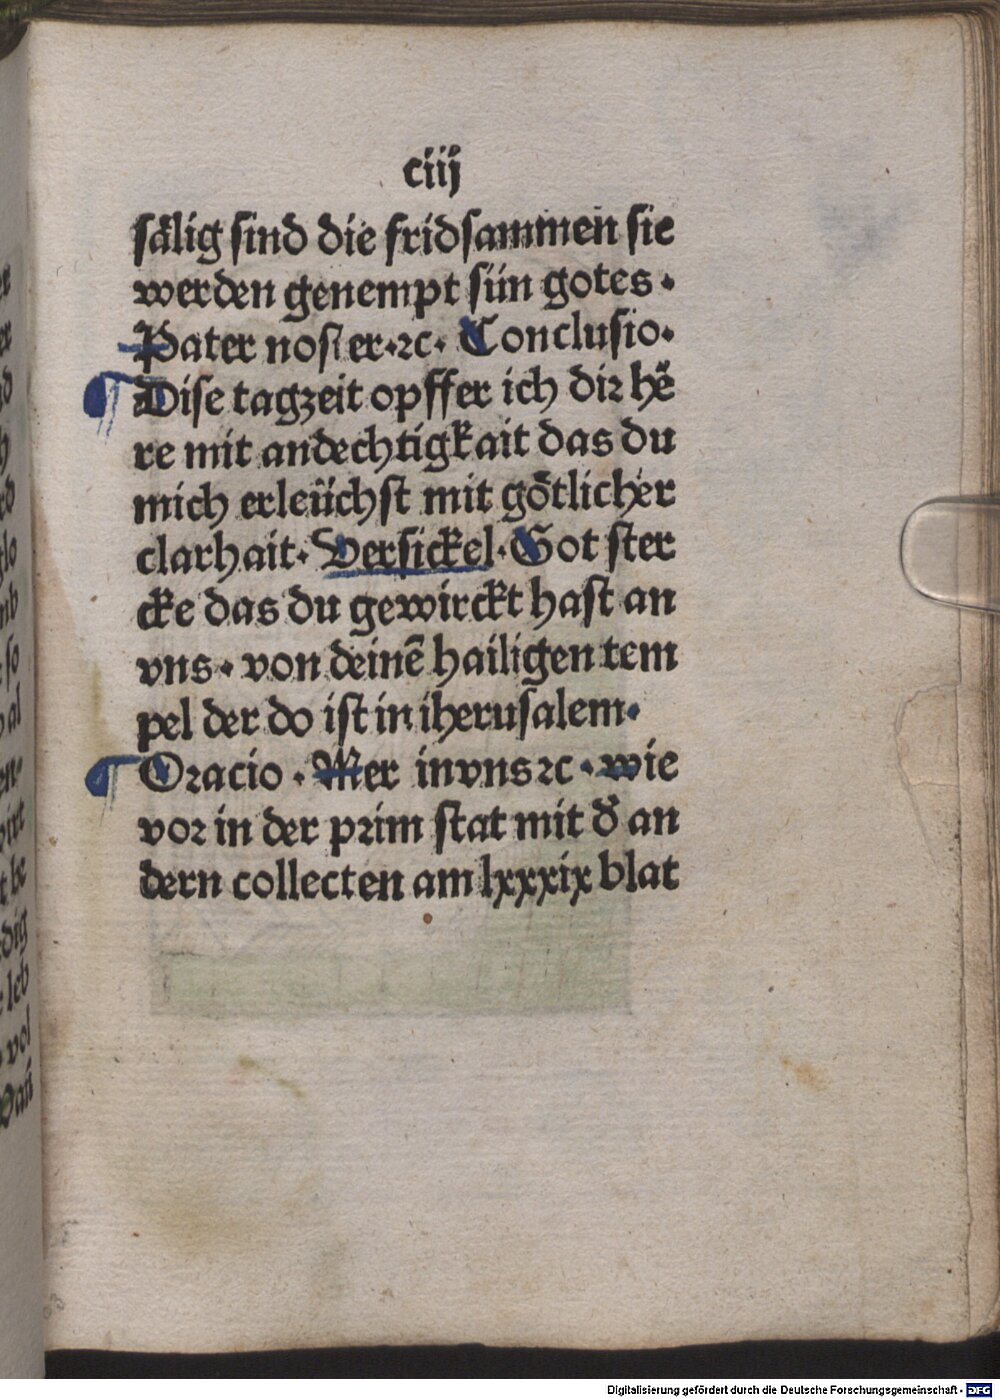 ciij
sälig sind die fridsammen sie
werden genempt sün gotes.
Pater noster.ꝛc. Conclusio.
¶ Dise tagzeit opffer ich dir hē
re mit andechtigkait das du
mich erleüchst mit götlicher
clarhait. Versickel. Got ster
cke das du gewirckt hast an
vns. von deinē hailigen tem
pel der do ist in iherusalem.
¶ Oracio. Mer in vns ꝛc. wie
vor in der prim stat mit d̕ an
dern collecten am lxxxix blat
Digitalisierung gefördert durch die Deutsche Forschungsgemeinschaft - DFG